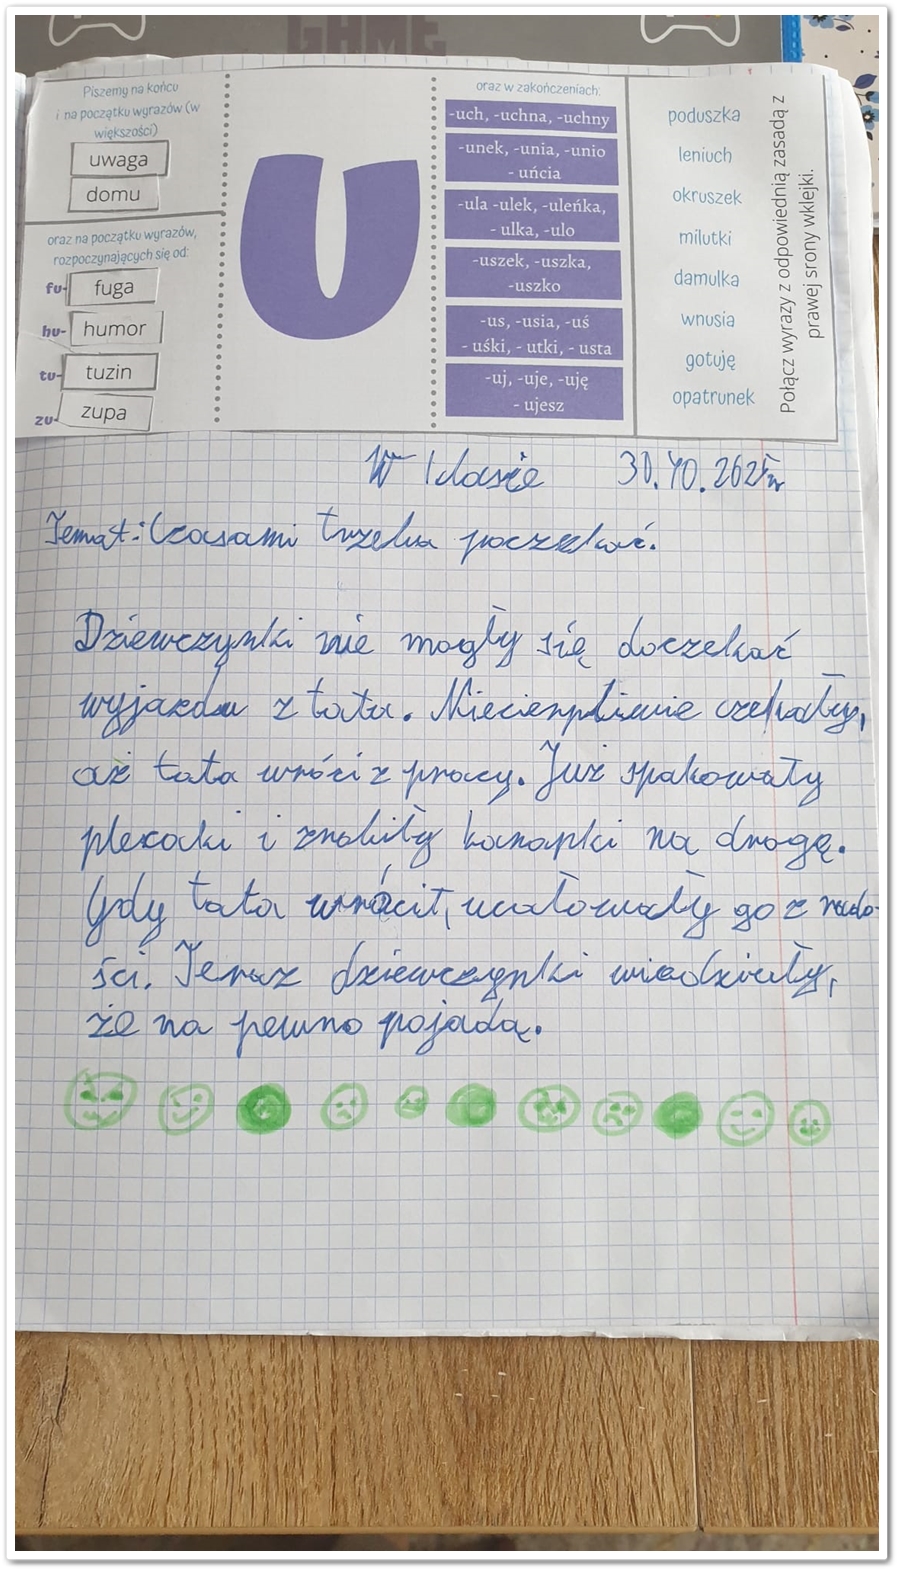 GAME
Piszemy na końcu
i na początku wyrazów (w
większości)
uwaga
domu
oraz na początku wyrazów,
rozpoczynających się od:
fu- fuga
hu- humor
tu- tuzin
zu- zupa
U
oraz w zakończeniach:
-uch, -uchna, -uchny
-unek, -unia, -unio
- uńcia
-ula -ulek, -uleńka,
- ulka, -ulo
-uszek, -uszka,
-uszko
-us, -usia, -uś
- uśki, - utki, - usta
-uj, -uje, -uję
- ujesz
poduszka
leniuch
okruszek
milutki
damulka
wnusia
gotuję
opatrunek
Połącz wyrazy z odpowiednią zasadą z
prawej srony wklejki.
W klasie 30.10.2025r
Temat: Czasami trzeba poczekać.
Dziewczynki nie mogły się doczekać
wyjazdu z tata. Niecierpliwie czekały,
aż tata wróci z pracy. Już spakowały
plecaki i zrobiły kanapki na drogę.
Gdy tata wrócił, ucałowały go z rado-
ści. Teraz dziewczynki wiedziały,
że na pewno pojadą.